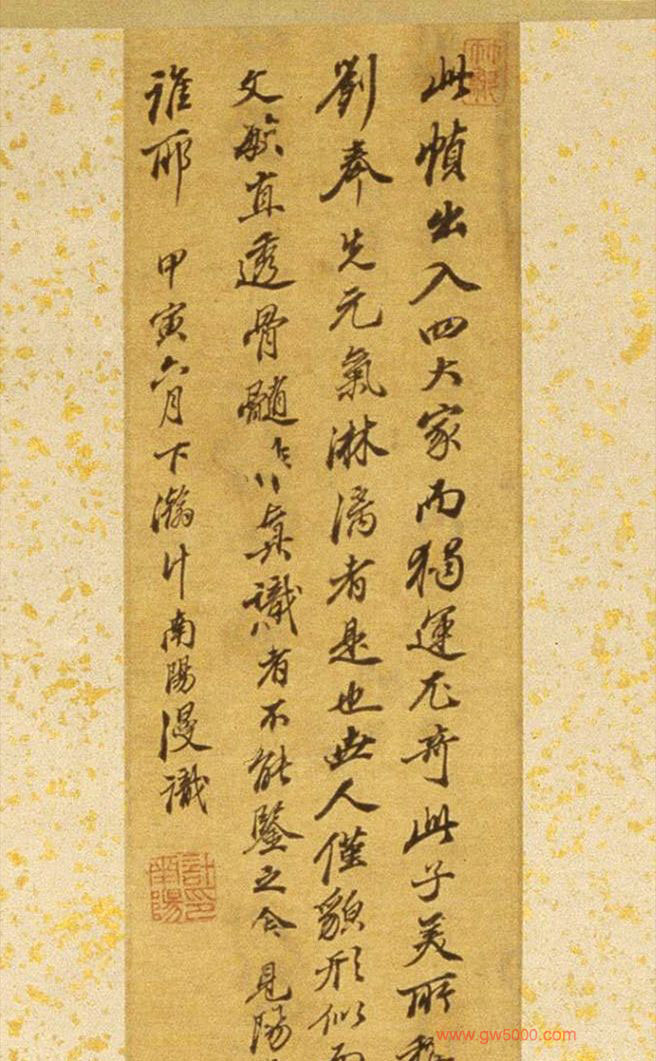 此幀出入四大家而獨運尤奇此子美所
劉奉先元氣淋漓者是也世人僅貌形似而
文敏直透骨髓 真識者不能鑒之今見陽
誰耶
甲寅六月下瀚計南陽漫識
計南陽印
www.gw5000.com